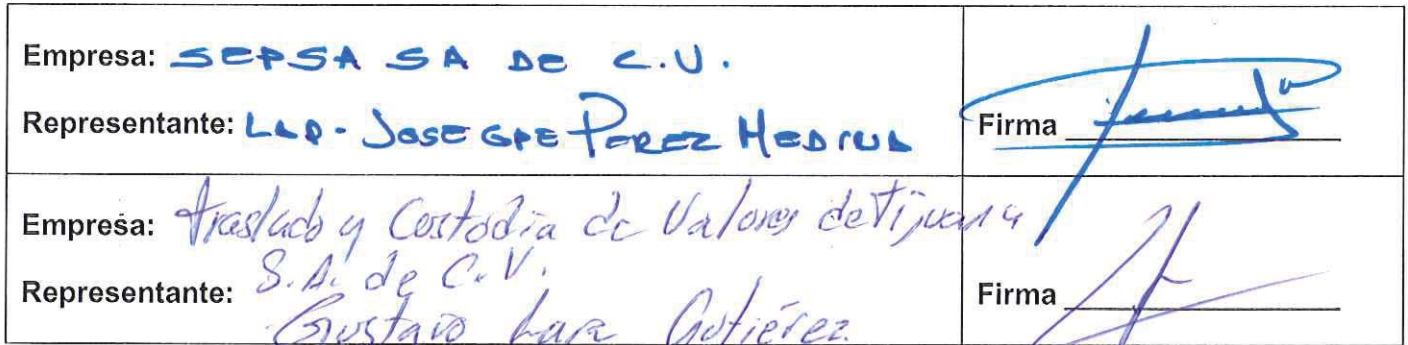 Empresa: SEPSA SA DE C.V.
Representante: LAP. JOSE GPE PEREZ MEDINA
Firma
Empresa: Traslado y Custodia de Valores de Tijuana
S.A. de C.V.
Representante: Gustavo Lara Gutiérrez
Firma